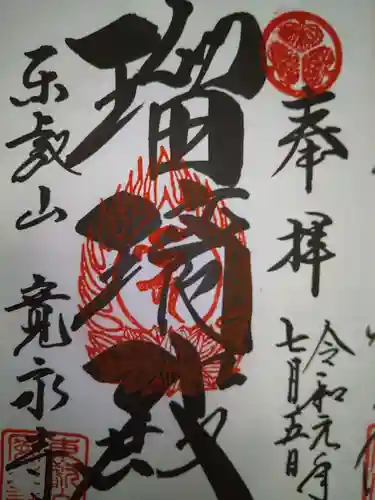 奉拝
令和元年
七月五日
瑠璃殿
东叡山
寛永寺